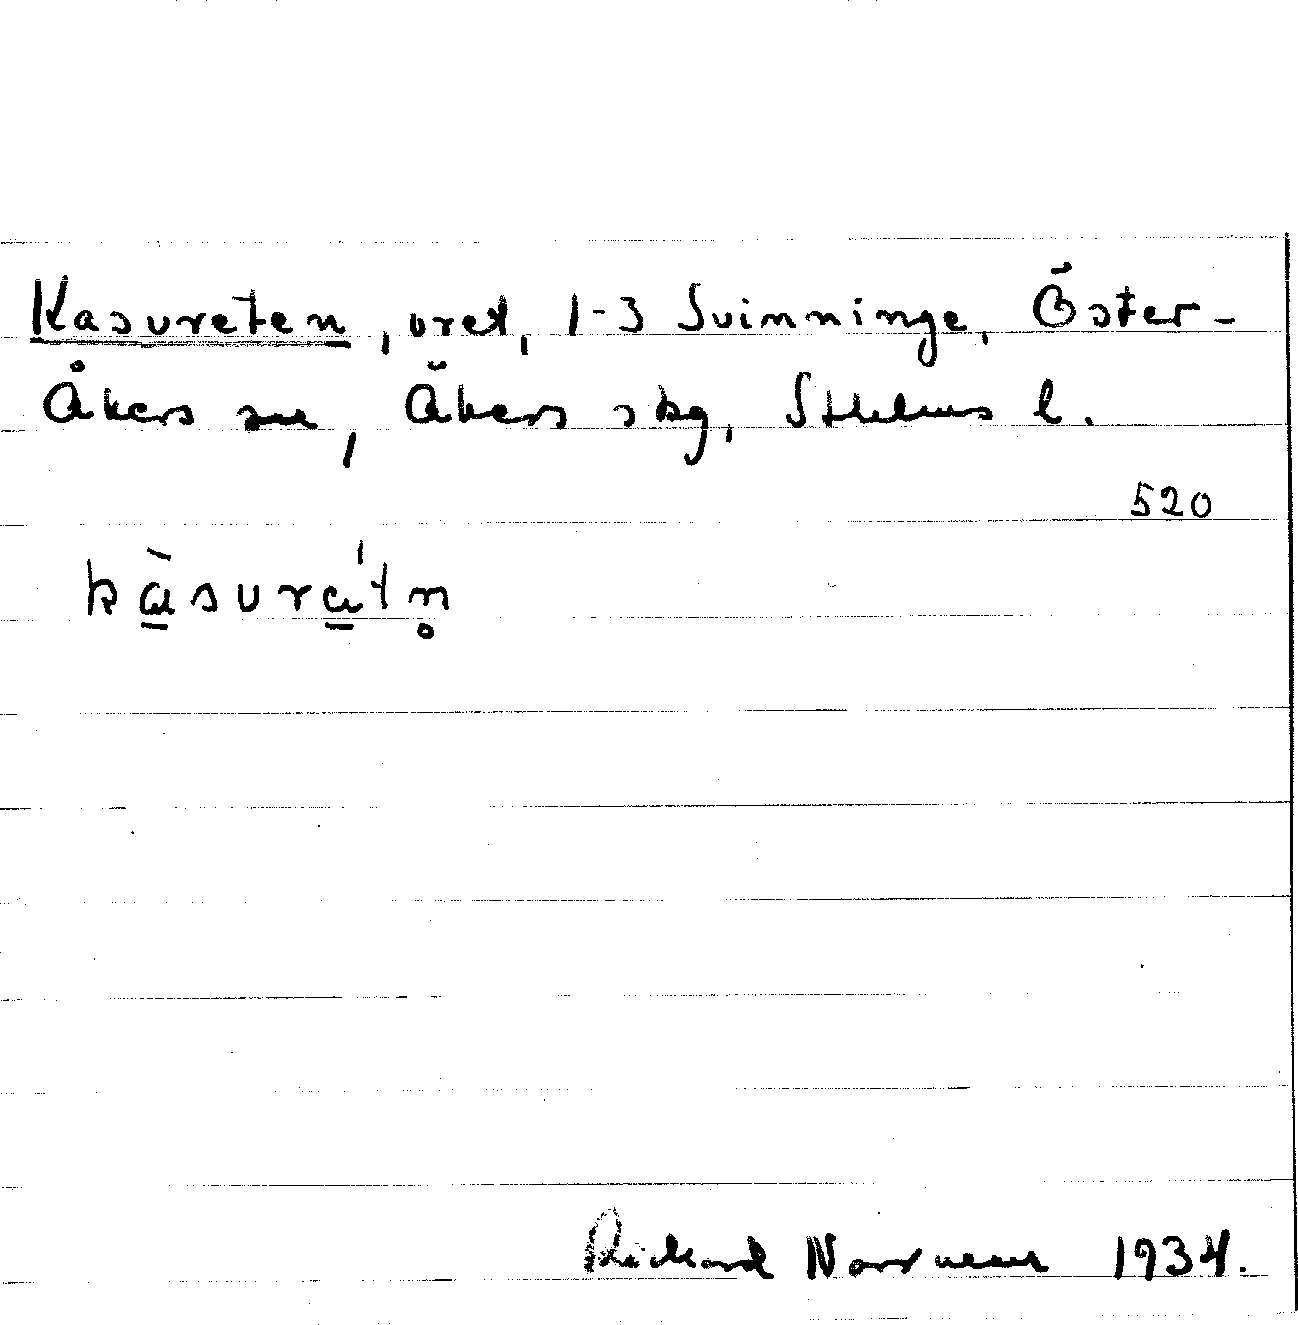 Kasureten, uret, 1-3 Svinninge, Öster-
Åkers sn, Åkers skg, Sthlms l.
520
kàsurátn̥
Rickard Norrman 1934.